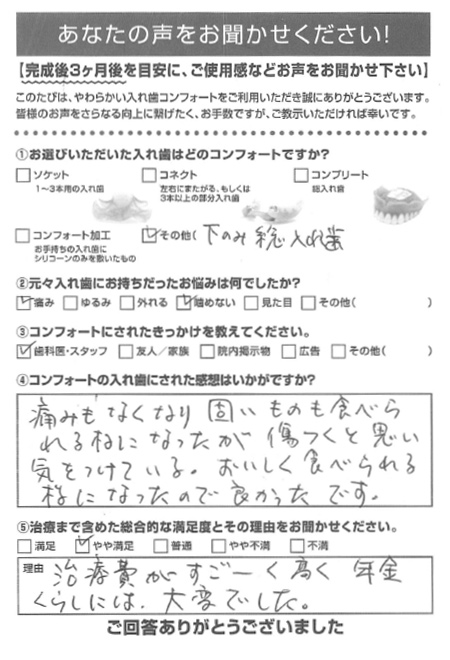 あなたの声をお聞かせください!
【完成後3ヶ月後を目安に、ご使用感などお声をお聞かせ下さい】
このたびは、やわらかい入れ歯コンフォートをご利用いただき誠にありがとうございます。
皆様のお声をさらなる向上に繋げたく、お手数ですが、ご教示いただければ幸いです。
①お選びいただいた入れ歯はどのコンフォートですか?
□ソケット □コネクト □コンプリート
1〜3本用の入れ歯 左右にまたがる、もしくは 総入れ歯
3本以上の部分入れ歯
□コンフォート加工 ☑その他( 下のみ 総入れ歯
お手持ちの入れ歯に
シリコーンのみを敷いたもの
②元々入れ歯にお持ちだったお悩みは何でしたか?
☑痛み □ゆるみ □外れる ☑噛めない □見た目 □その他( )
③コンフォートにされたきっかけを教えてください。
☑歯科医・スタッフ □友人/家族 □院内掲示物 □広告 □その他( )
④コンフォートの入れ歯にされた感想はいかがですか?
痛みもなくなり 固いものも食べら
れる様になったが 傷つくと思い
気をつけている。おいしく食べられる
様になったので良かったです。
⑤治療まで含めた総合的な満足度とその理由をお聞かせください。
□満足 ☑やや満足 □普通 □やや不満 □不満
理由 治療費がすごーく高く 年金
くらしには、大変でした。
ご回答ありがとうございました